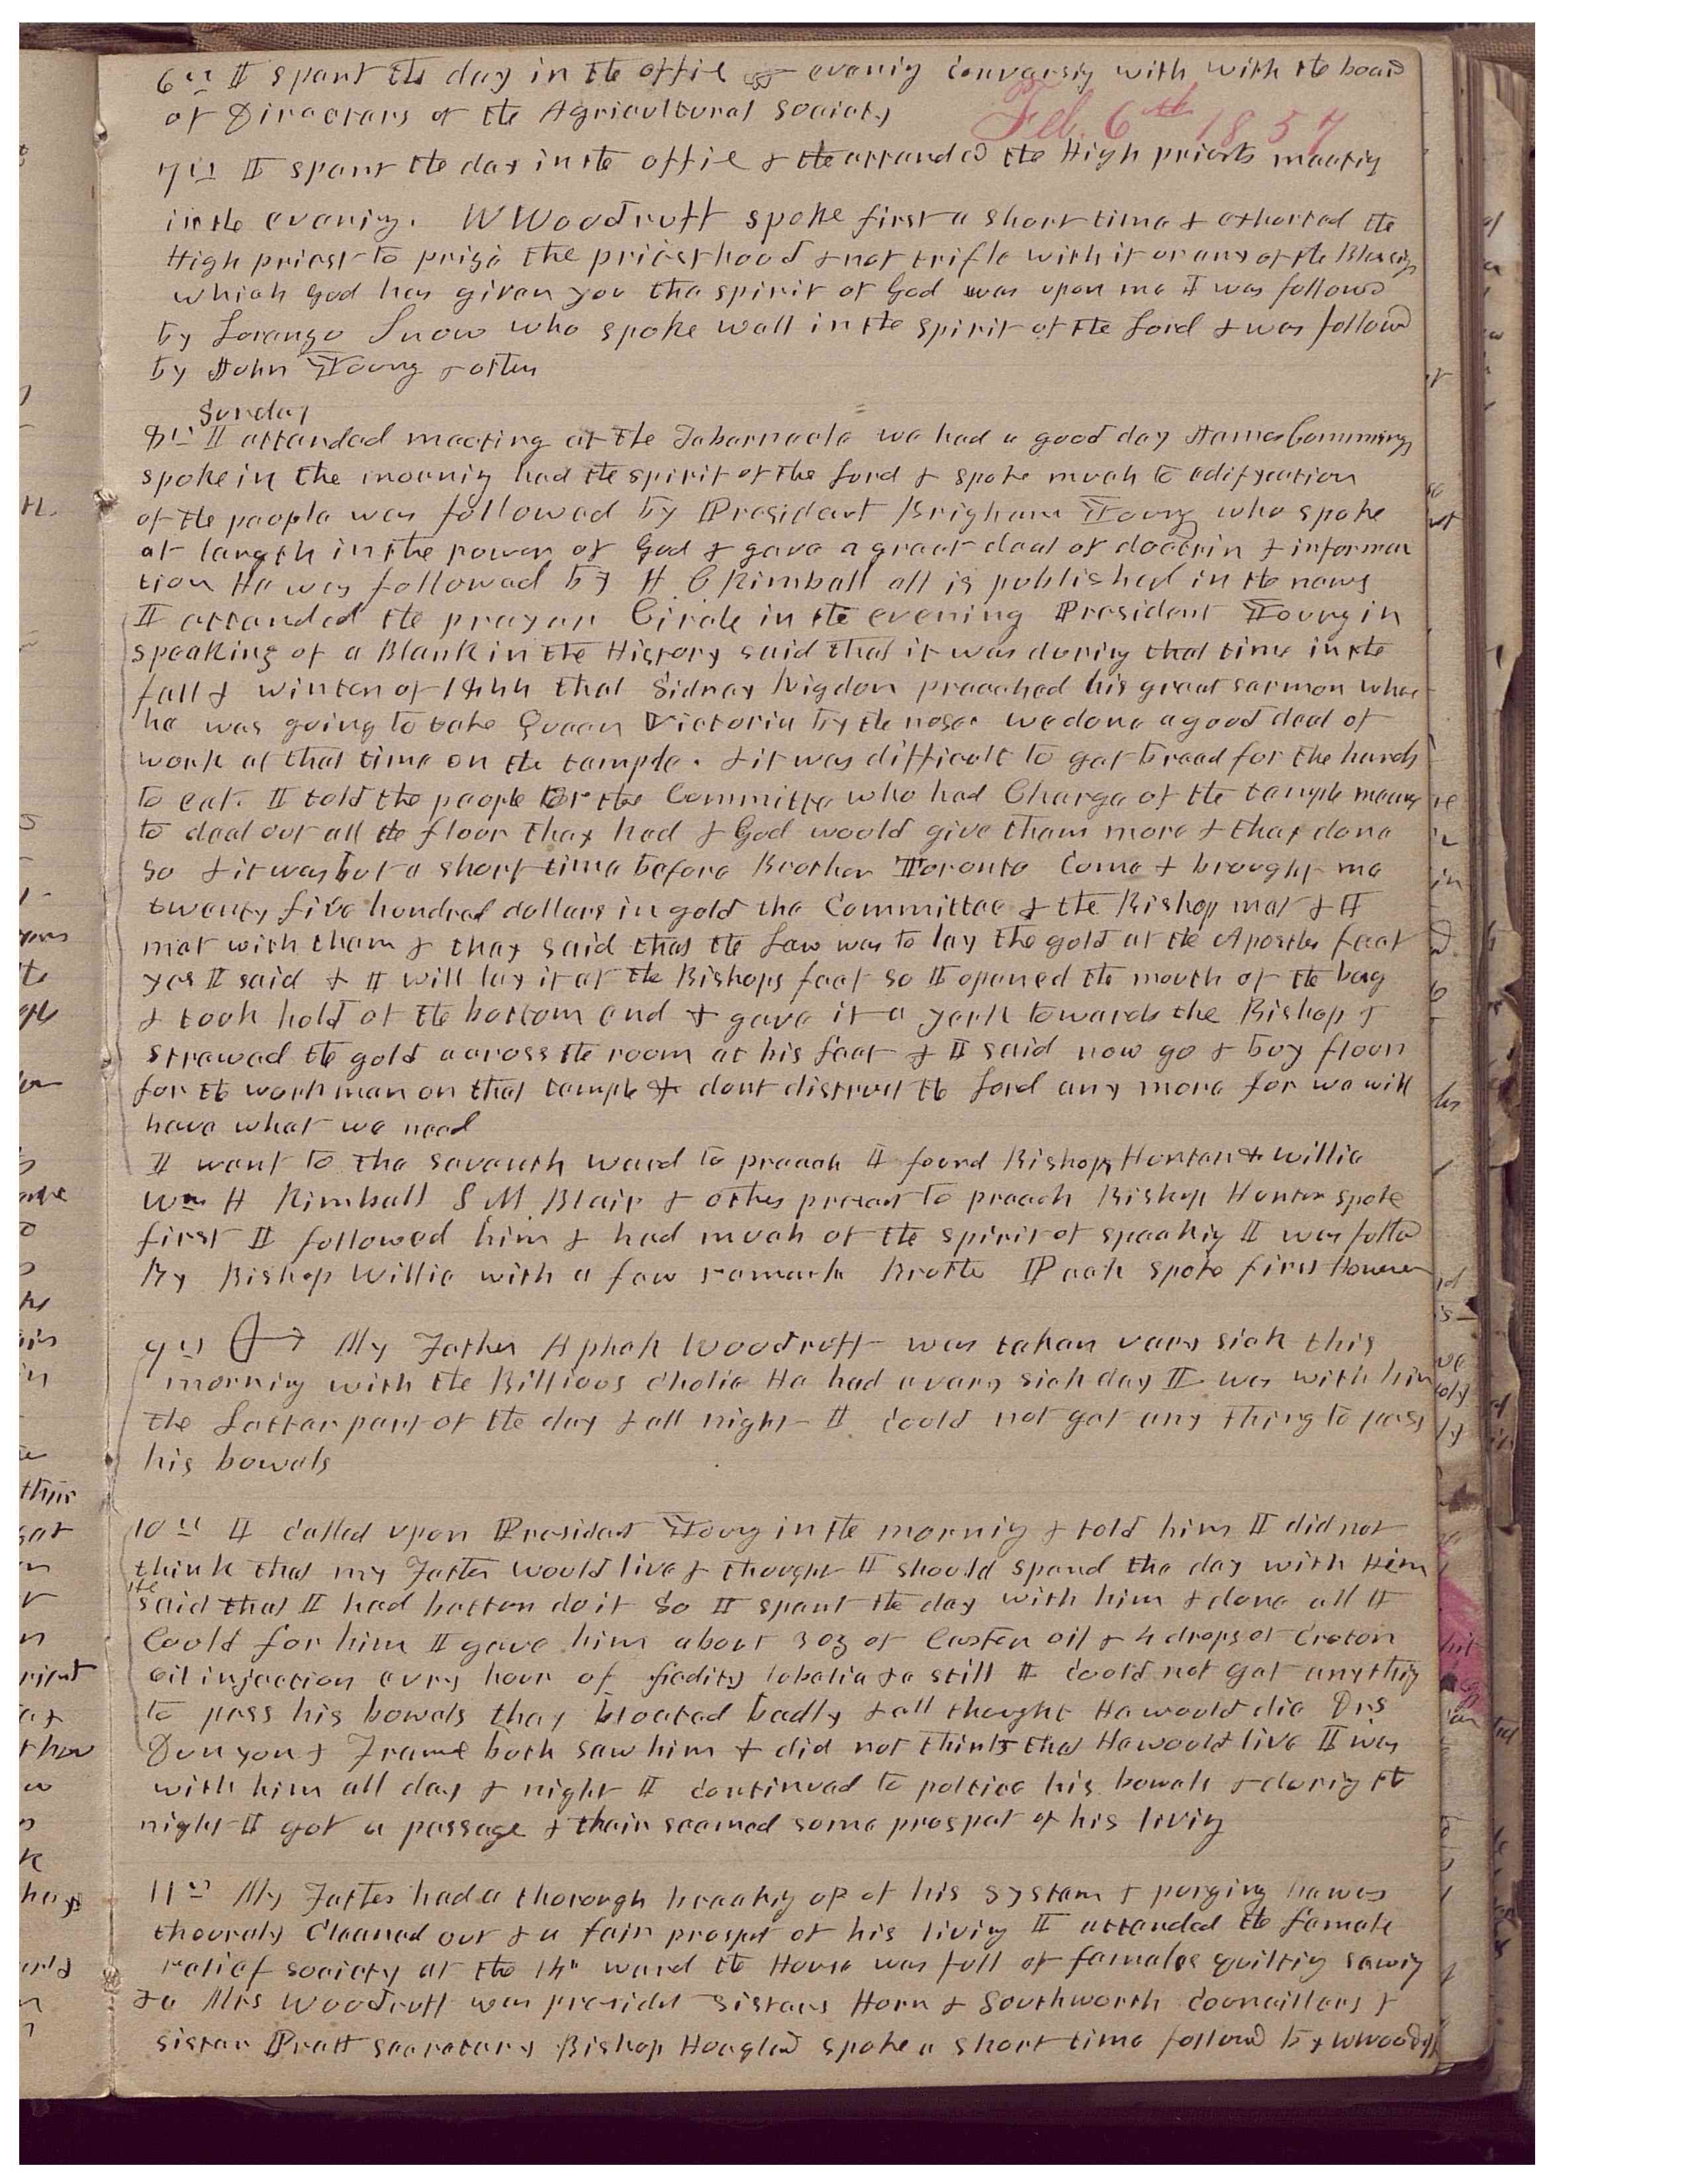 6th I spent the day in the office & evenig conversig with with the board
of Directors of the Agricultural Society
Feb. 6th 1857
7th I spent the day in the office & the attended the High priests meetig
in the evening. W Woodruff spoke first a short time & exhorted the
High priest to prize the priesthood & not trifle with it or any of the Blessigs
which God has given you the spirit of God was upon me I was followd
by Lorenzo Snow who spoke well in the spirit of the Lord & was followd
by John Young & others
Sunday
8th I attended meeting at the Tabernacle we had a good day James Cummings
spoke in the mornig had the spirit of the Lord & spoke much to edifycation
of the people was followed by President Brigham Young who spoke
at length in the power of God & gave a great deal of doctrin & informa
tion He was followed by H. C Kimball all is published in the news
I attended the prayer Circle in the evening President Young in
speaking of a Blank in the History said that it was during that time in the
fall & winter of 1844 that Sidney Rigdon preached his great sermon when
he was going to take Queen Victoria by the nose. we done a good deal of
work at that time on the temple. & it was difficult to get bread for the hands
to eat. I told the people or the Committe who had Charge of the temple means
to deal out all the flour they had & God would give them more & they done
so & it was but a short time before Brother Toronto Come & brought me
twenty five hundred dollars in gold the Committee & the Bishop met & I
met with them & they said that the Law was to lay the gold at the Apostles feet
yes I said & I will lay it at the Bishops feet so I opened the mouth of the bag
& took hold of the bottom end & gave it a yerk towards the Bishop &
strewed the gold across the room at his feet & I said now go & buy flour
for the workmen on that temple & dont distrust the Lord any more for we will
have what we need
I went to the seventh ward to preach I found Bishops Hunter & Willie
Wm H Kimball S M Blair & others present to preach Bishop Hunter spoke
first I followed him & had much of the spirit of speakig I was followd
By Bishop Willie with a few remarks Brother Peck spoke first However
9th My Father Aphek Woodruff was taken very sick this
mornig with the Billious cholic He had a very sick day I was with him
the Latter part of the day & all night I could not get any thing to pass
his bowels
10th I called upon President Young in the mornig & told him I did not
think that my Father would live & thought I should spend the day with Him
He
said that I had better do it So I spent the day with him & done all I
Could for him I gave him about 3 oz of Caster oil & 4 drops of Croton
oil injection evry hour of lobelia &c still I could not get anythig
to pass his bowels they bloated badly & all thought He would die Drs
Dunyon & Frame both saw him & did not think that He would live I was
with him all day & night I continued to poltice his bowels & durig the
night I got a passage & their seemed some prospet of his livig
11th My Father had a thorough breakig up of his system & purging he was
thouraly Cleaned out & a fair prospet of his living I attended the female
relief society at the 14th ward the House was full of females quiltig sewig
&c Mrs Woodruff was presidet Sisters Horn & Southworth Councillors &
sister Pratt secretary Bishop Hoagland spoke a short time followd by W Woodruff